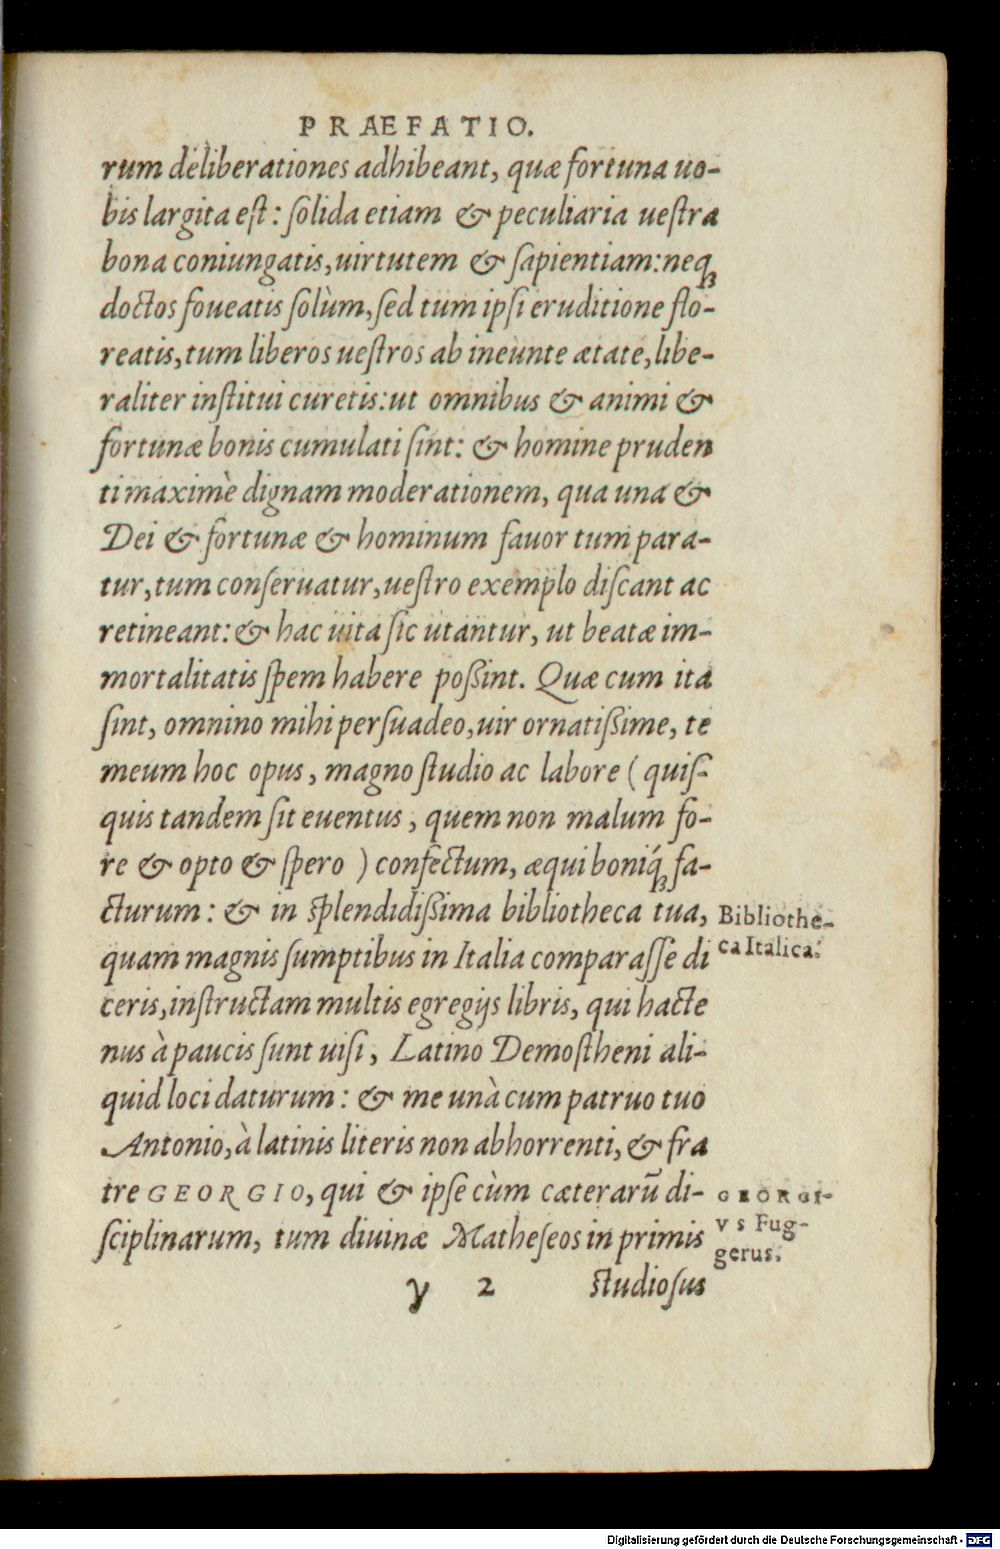 PRAEFATIO.
rum deliberationes adhibeant, quæ fortuna uo-
bis largita est: solida etiam & peculiaria uestra
bona coniungatis, uirtutem & sapientiam: neq́;
doctos foueatis solùm, sed tum ipsi eruditione flo-
reatis, tum liberos uestros ab ineunte ætate, libe-
raliter institui curetis: ut omnibus & animi &
fortunæ bonis cumulati sint: & homine pruden
ti maximè dignam moderationem, qua una &
Dei & fortunæ & hominum fauor tum para-
tur, tum conseruatur, uestro exemplo discant ac
retineant: & hac uita sic utantur, ut beatæ im-
mortalitatis spem habere poßint. Quæ cum ita
sint, omnino mihi persuadeo, uir ornatißime, te
meum hoc opus, magno studio ac labore (quis-
quis tandem sit euentus, quem non malum fo-
re & opto & spero) confectum, æqui boniq́; fa-
cturum: & in splendidißima bibliotheca tua,
Bibliothe-
ca Italica.
quam magnis sumptibus in Italia comparasse di
ceris, instructam multis egregijs libris, qui hacte
nus à paucis sunt uisi, Latino Demostheni ali-
quid loci daturum: & me unà cum patruo tuo
Antonio, à latinis literis non abhorrenti, & fra
tre GEORGIO, qui & ipse cùm cæterarũ di-
GEORGI-
VS Fug-
gerus.
sciplinarum, tum diuinæ Matheseos in primis
γ 2 studiosus
Digitalisierung gefördert durch die Deutsche Forschungsgemeinschaft - DFG